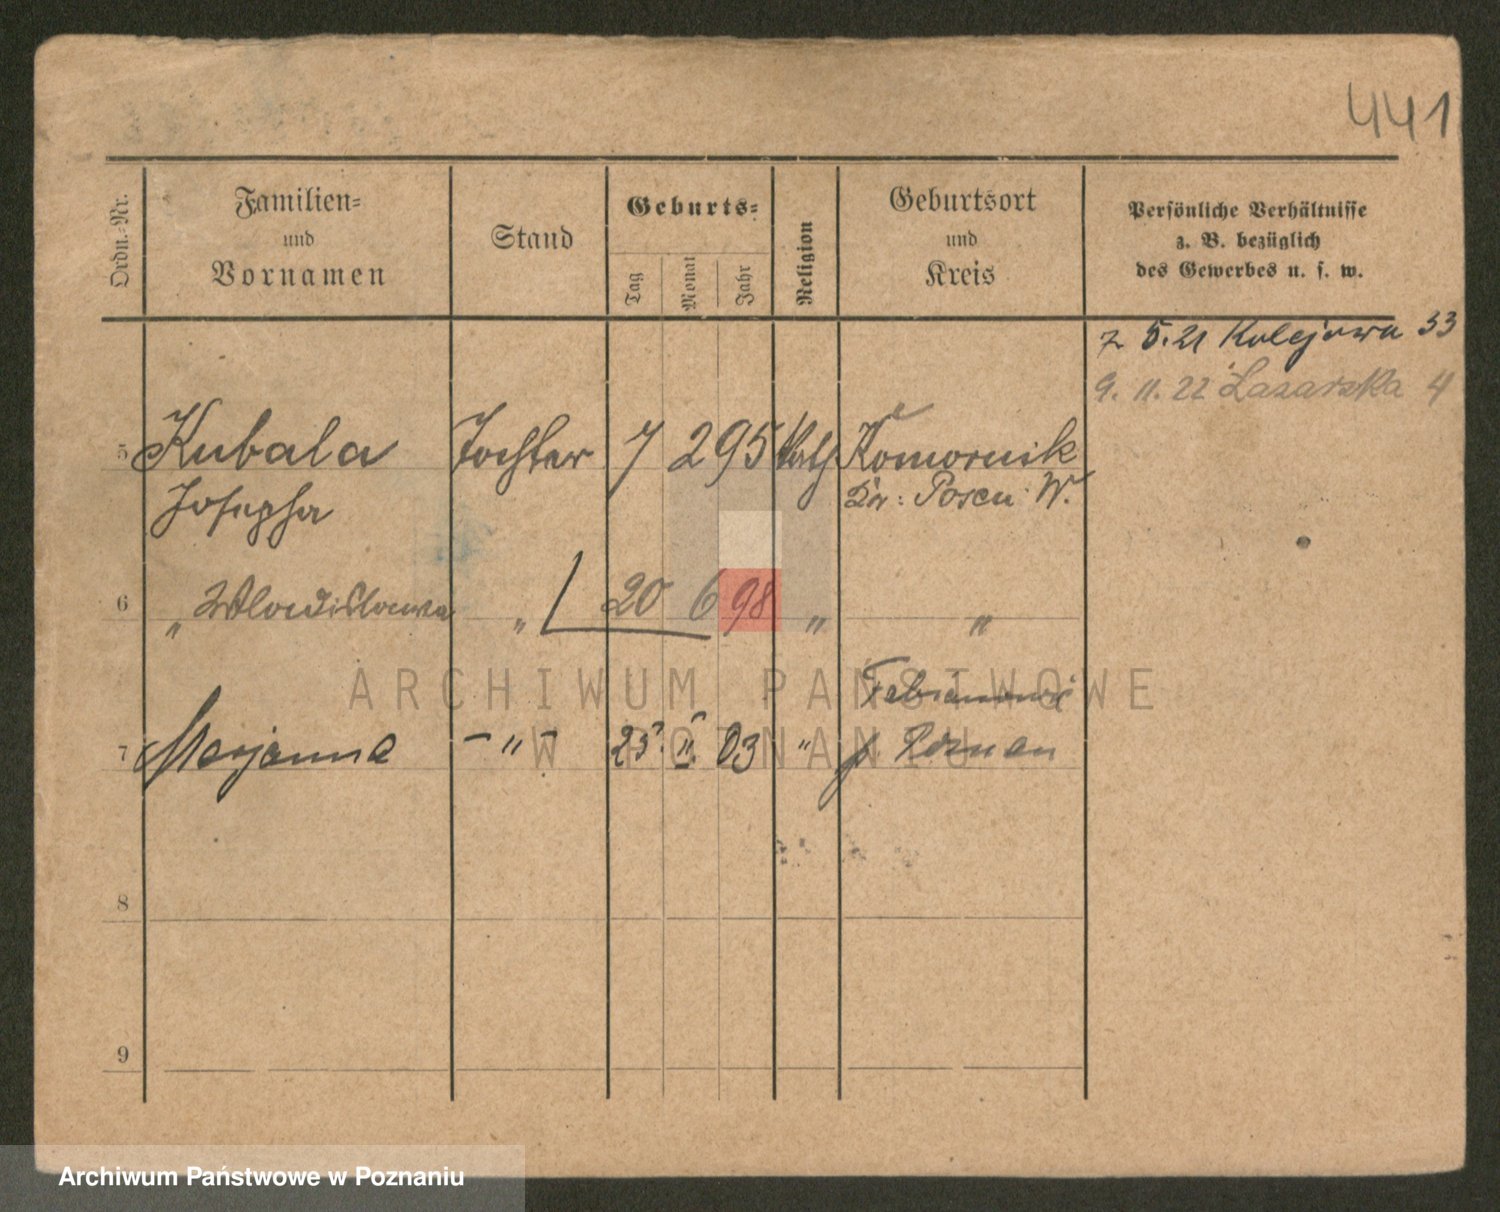 441
Ordn.-Nr.
Familien-
und
Vornamen
Stand
Geburts-
Tag
Monat
Jahr
Religion
Geburtsort
und
Kreis
Persönliche Verhältnisse
z. B. bezüglich
des Gewerbes u. s. w.
7 5.21 Kolejowa 33
9. 11. 22 Łazarska 4
5 Kubala Tochter 7 2 95 kath Komornik
Josepha Kr: Posen W.
6 " Wladislawa " 20 6 98 " "
7 Marjanna – " – 25. II. 03 " Fabianowo
p. Poznan
8
9
ARCHIWUM PAŃSTWOWE
W POZNANIU
Archiwum Państwowe w Poznaniu